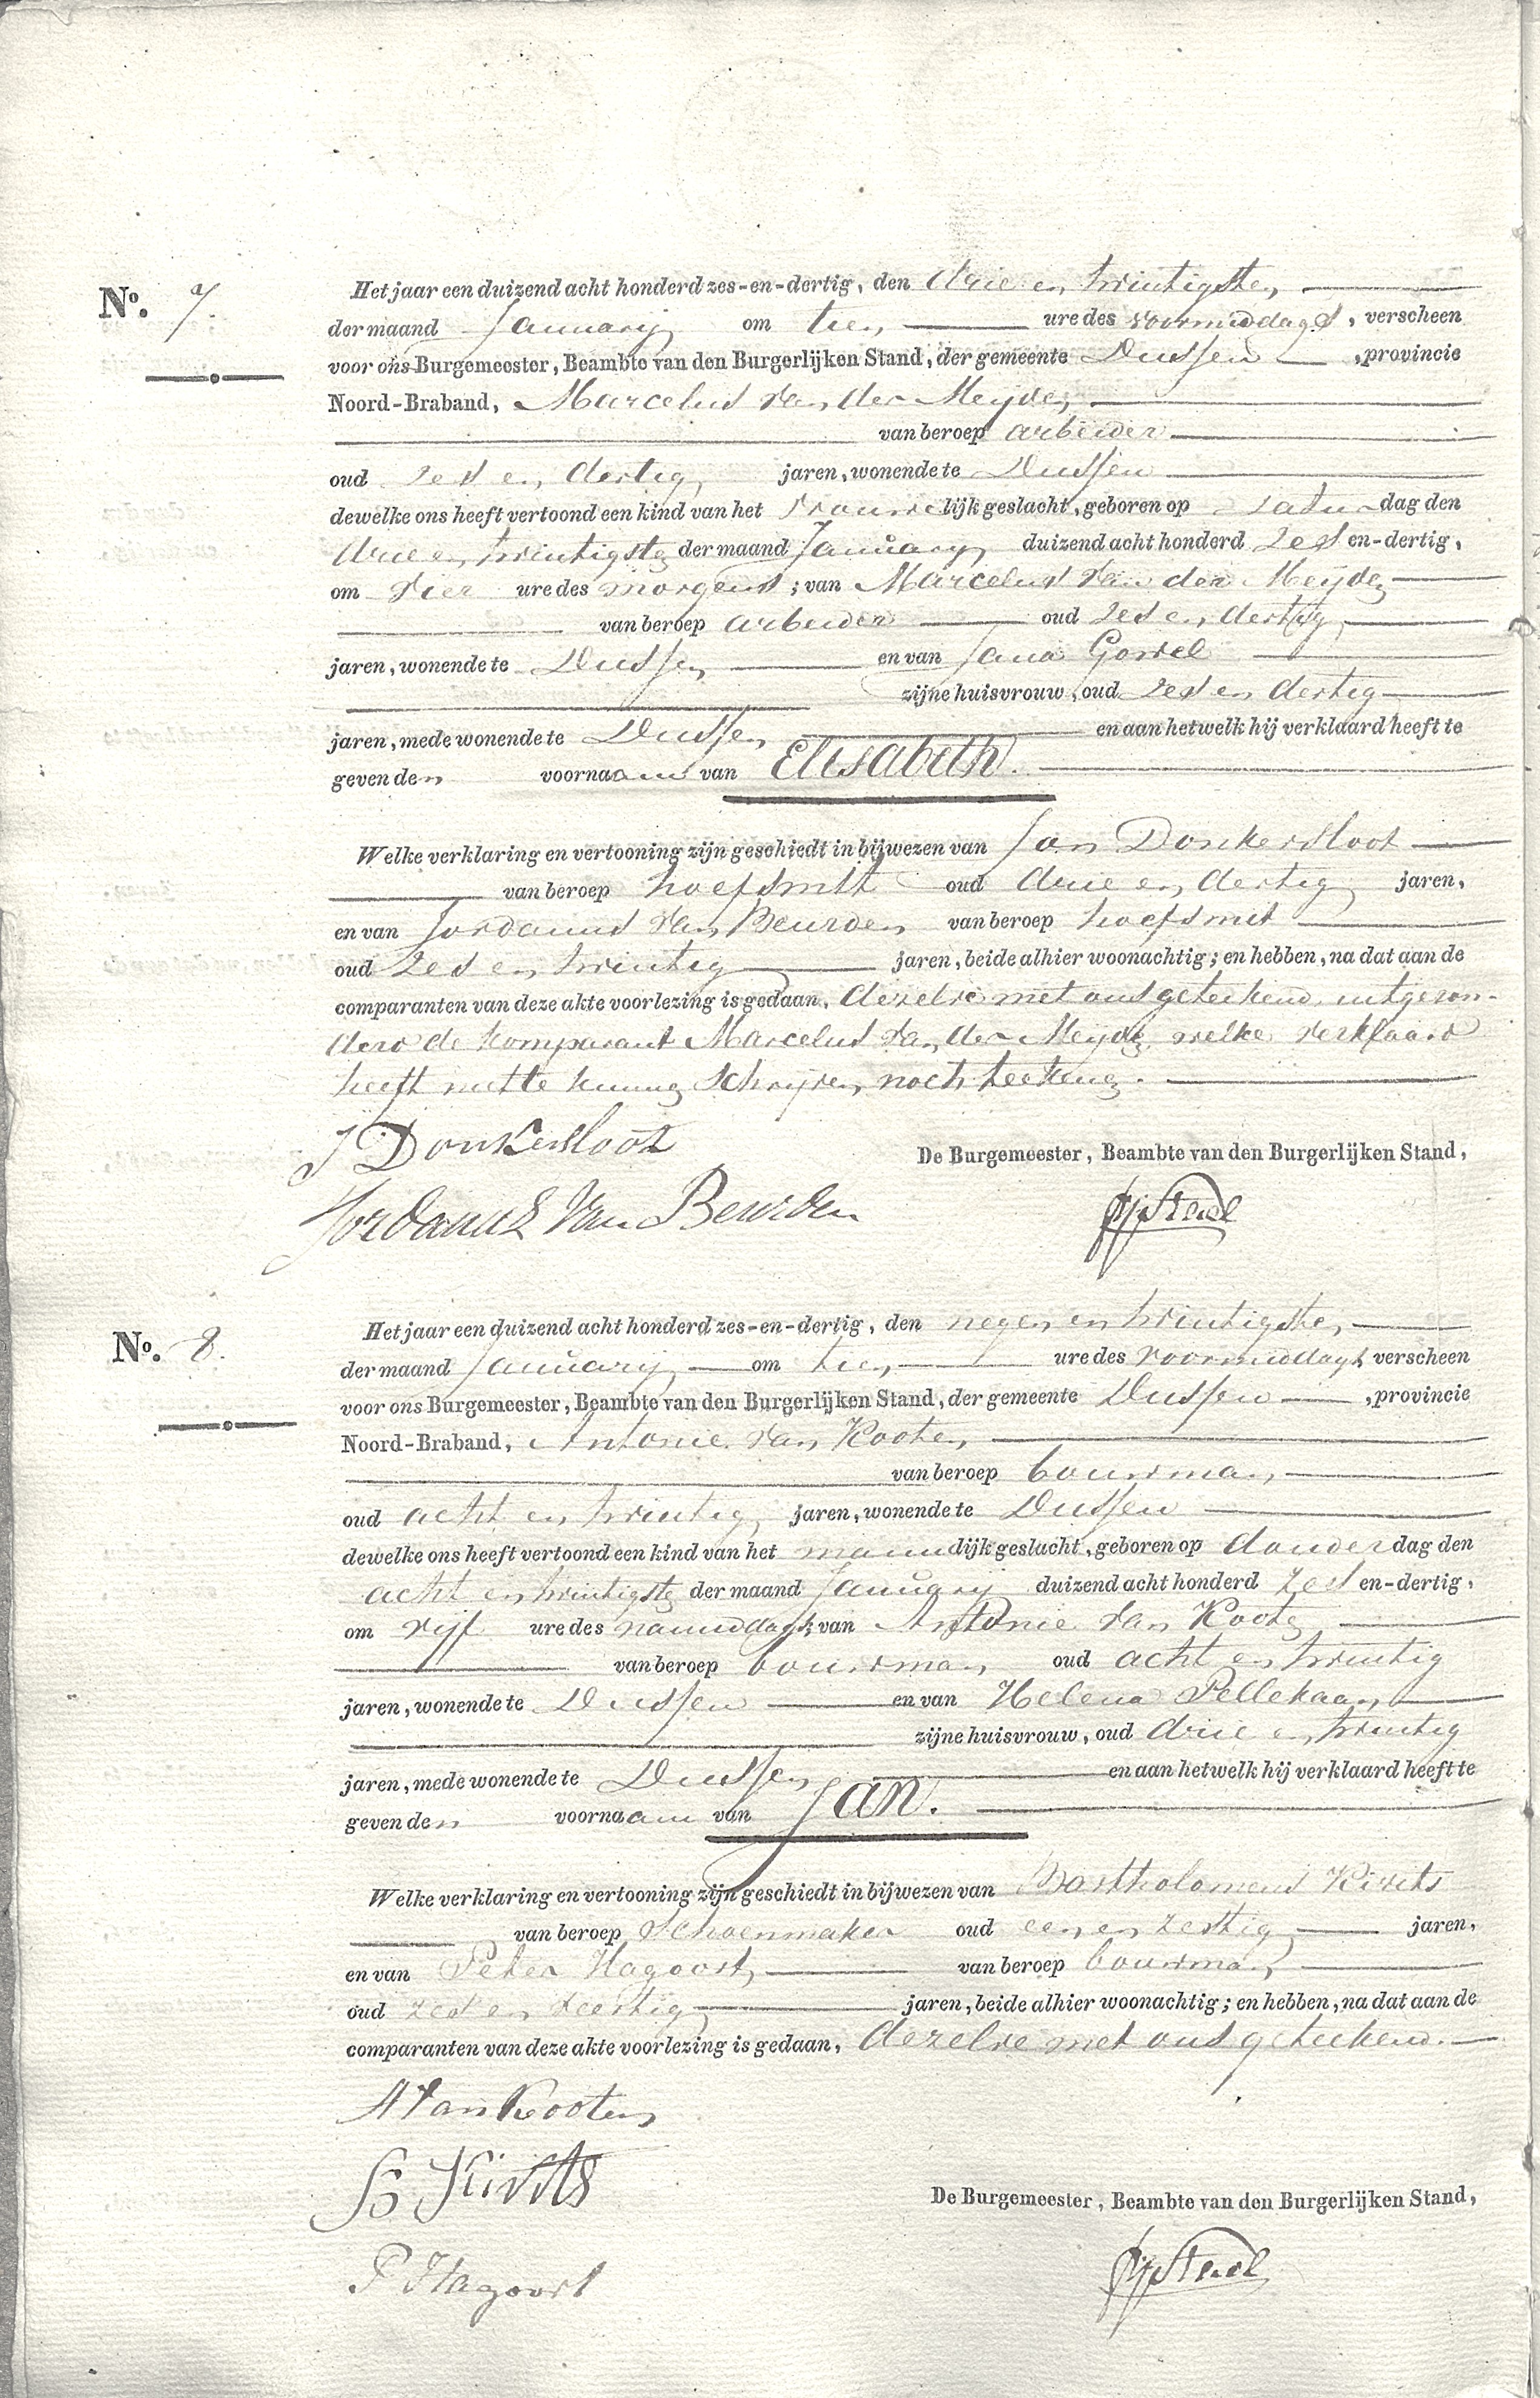 N.º 7.
Het jaar een duizend acht honderd zes-en-dertig, den drie en twintigsten
der maand January om tien ure des voormiddags, verscheen
voor ons Burgemeester, Beambte van den Burgerlijken Stand, der gemeente Dussen, provincie
Noord-Braband, Marcelus van der Meijden
van beroep arbeider
oud zes en dertig jaren, wonende te Dussen
dewelke ons heeft vertoond een kind van het vrouwelijk geslacht, geboren op Saturdag den
drie en twintigste der maand January duizend acht honderd zes en-dertig,
om vier ure des morgens; van Marcelus van der Meijden
van beroep arbeider oud zes en dertig
jaren, wonende te Dussen en van Jana
zijne huisvrouw, oud zes en dertig
jaren, mede wonende te Dussen en aan hetwelk hij verklaard heeft te
geven den voornaam van Elisabeth.
Welke verklaring en vertooning zijn geschiedt in bijwezen van Jan Donkersloot
van beroep hoefsmit oud drie en dertig jaren,
en van Jordanus van Beurden van beroep hoefsmit
oud zes en twintig jaren, beide alhier woonachtig; en hebben, na dat aan de
comparanten van deze akte voorlezing is gedaan, dezelve met ons geteekend, uitgezon-
derd de komparant Marcelus van der Meijden welke verklaard
heeft niet te kunnen schrijven noch teekenen.
J Donkersloot
De Burgemeester, Beambte van den Burgerlijken Stand,
Jordanus Van Beurden
N.º 8.
Het jaar een duizend acht honderd zes-en-dertig, den negen en twintigsten
der maand January om tien ure des voormiddags, verscheen
voor ons Burgemeester, Beambte van den Burgerlijken Stand, der gemeente Dussen, provincie
Noord-Braband, Antonie van Kooten
van beroep bouwman
oud acht en twintig jaren, wonende te Dussen
dewelke ons heeft vertoond een kind van het mannelijk geslacht, geboren op donderdag den
acht en twintigste der maand January duizend acht honderd zes en-dertig,
om vijf ure des namiddags; van Antonie van Kooten
van beroep bouwman oud acht en twintig
jaren, wonende te Dussen en van Helena Pellekaan
zijne huisvrouw, oud drie en twintig
jaren, mede wonende te Dussen en aan hetwelk hij verklaard heeft te
geven den voornaam van Jan.
Welke verklaring en vertooning zijn geschiedt in bijwezen van Bartholomeus Kivits
van beroep Schoenmaker oud een en zestig jaren,
en van Peter Hagoort van beroep bouwman
oud zes en jaren, beide alhier woonachtig; en hebben, na dat aan de
comparanten van deze akte voorlezing is gedaan, dezelve met ons geteekend.
A Van Kooten
B Kivits
De Burgemeester, Beambte van den Burgerlijken Stand,
P Hagoort